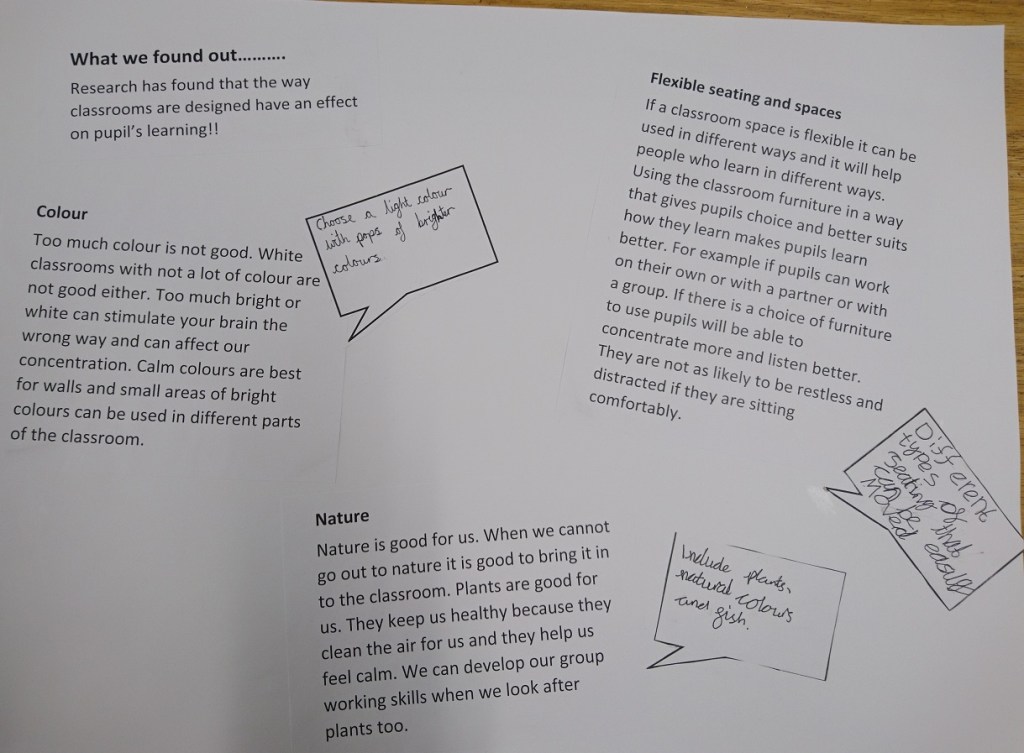 What we found out……….
Research has found that the way
classrooms are designed have an effect
on pupil's learning!!
Colour
Too much colour is not good. White
classrooms with not a lot of colour are
not good either. Too much bright or
white can stimulate your brain the
wrong way and can affect our
concentration. Calm colours are best
for walls and small areas of bright
colours can be used in different parts
of the classroom.
Choose a light colour
with pops of brighter
colours.
Flexible seating and spaces
If a classroom space is flexible it can be
used in different ways and it will help
people who learn in different ways.
Using the classroom furniture in a way
that gives pupils choice and better suits
how they learn makes pupils learn
better. For example if pupils can work
on their own or with a partner or with
a group. If there is a choice of furniture
to use pupils will be able to
concentrate more and listen better.
They are not as likely to be restless and
distracted if they are sitting
comfortably.
Different
types of
seating that
can be easily
moved
Nature
Nature is good for us. When we cannot
go out to nature it is good to bring it in
to the classroom. Plants are good for
us. They keep us healthy because they
clean the air for us and they help us
feel calm. We can develop our group
working skills when we look after
plants too.
Include plants,
natural colours
and fish.